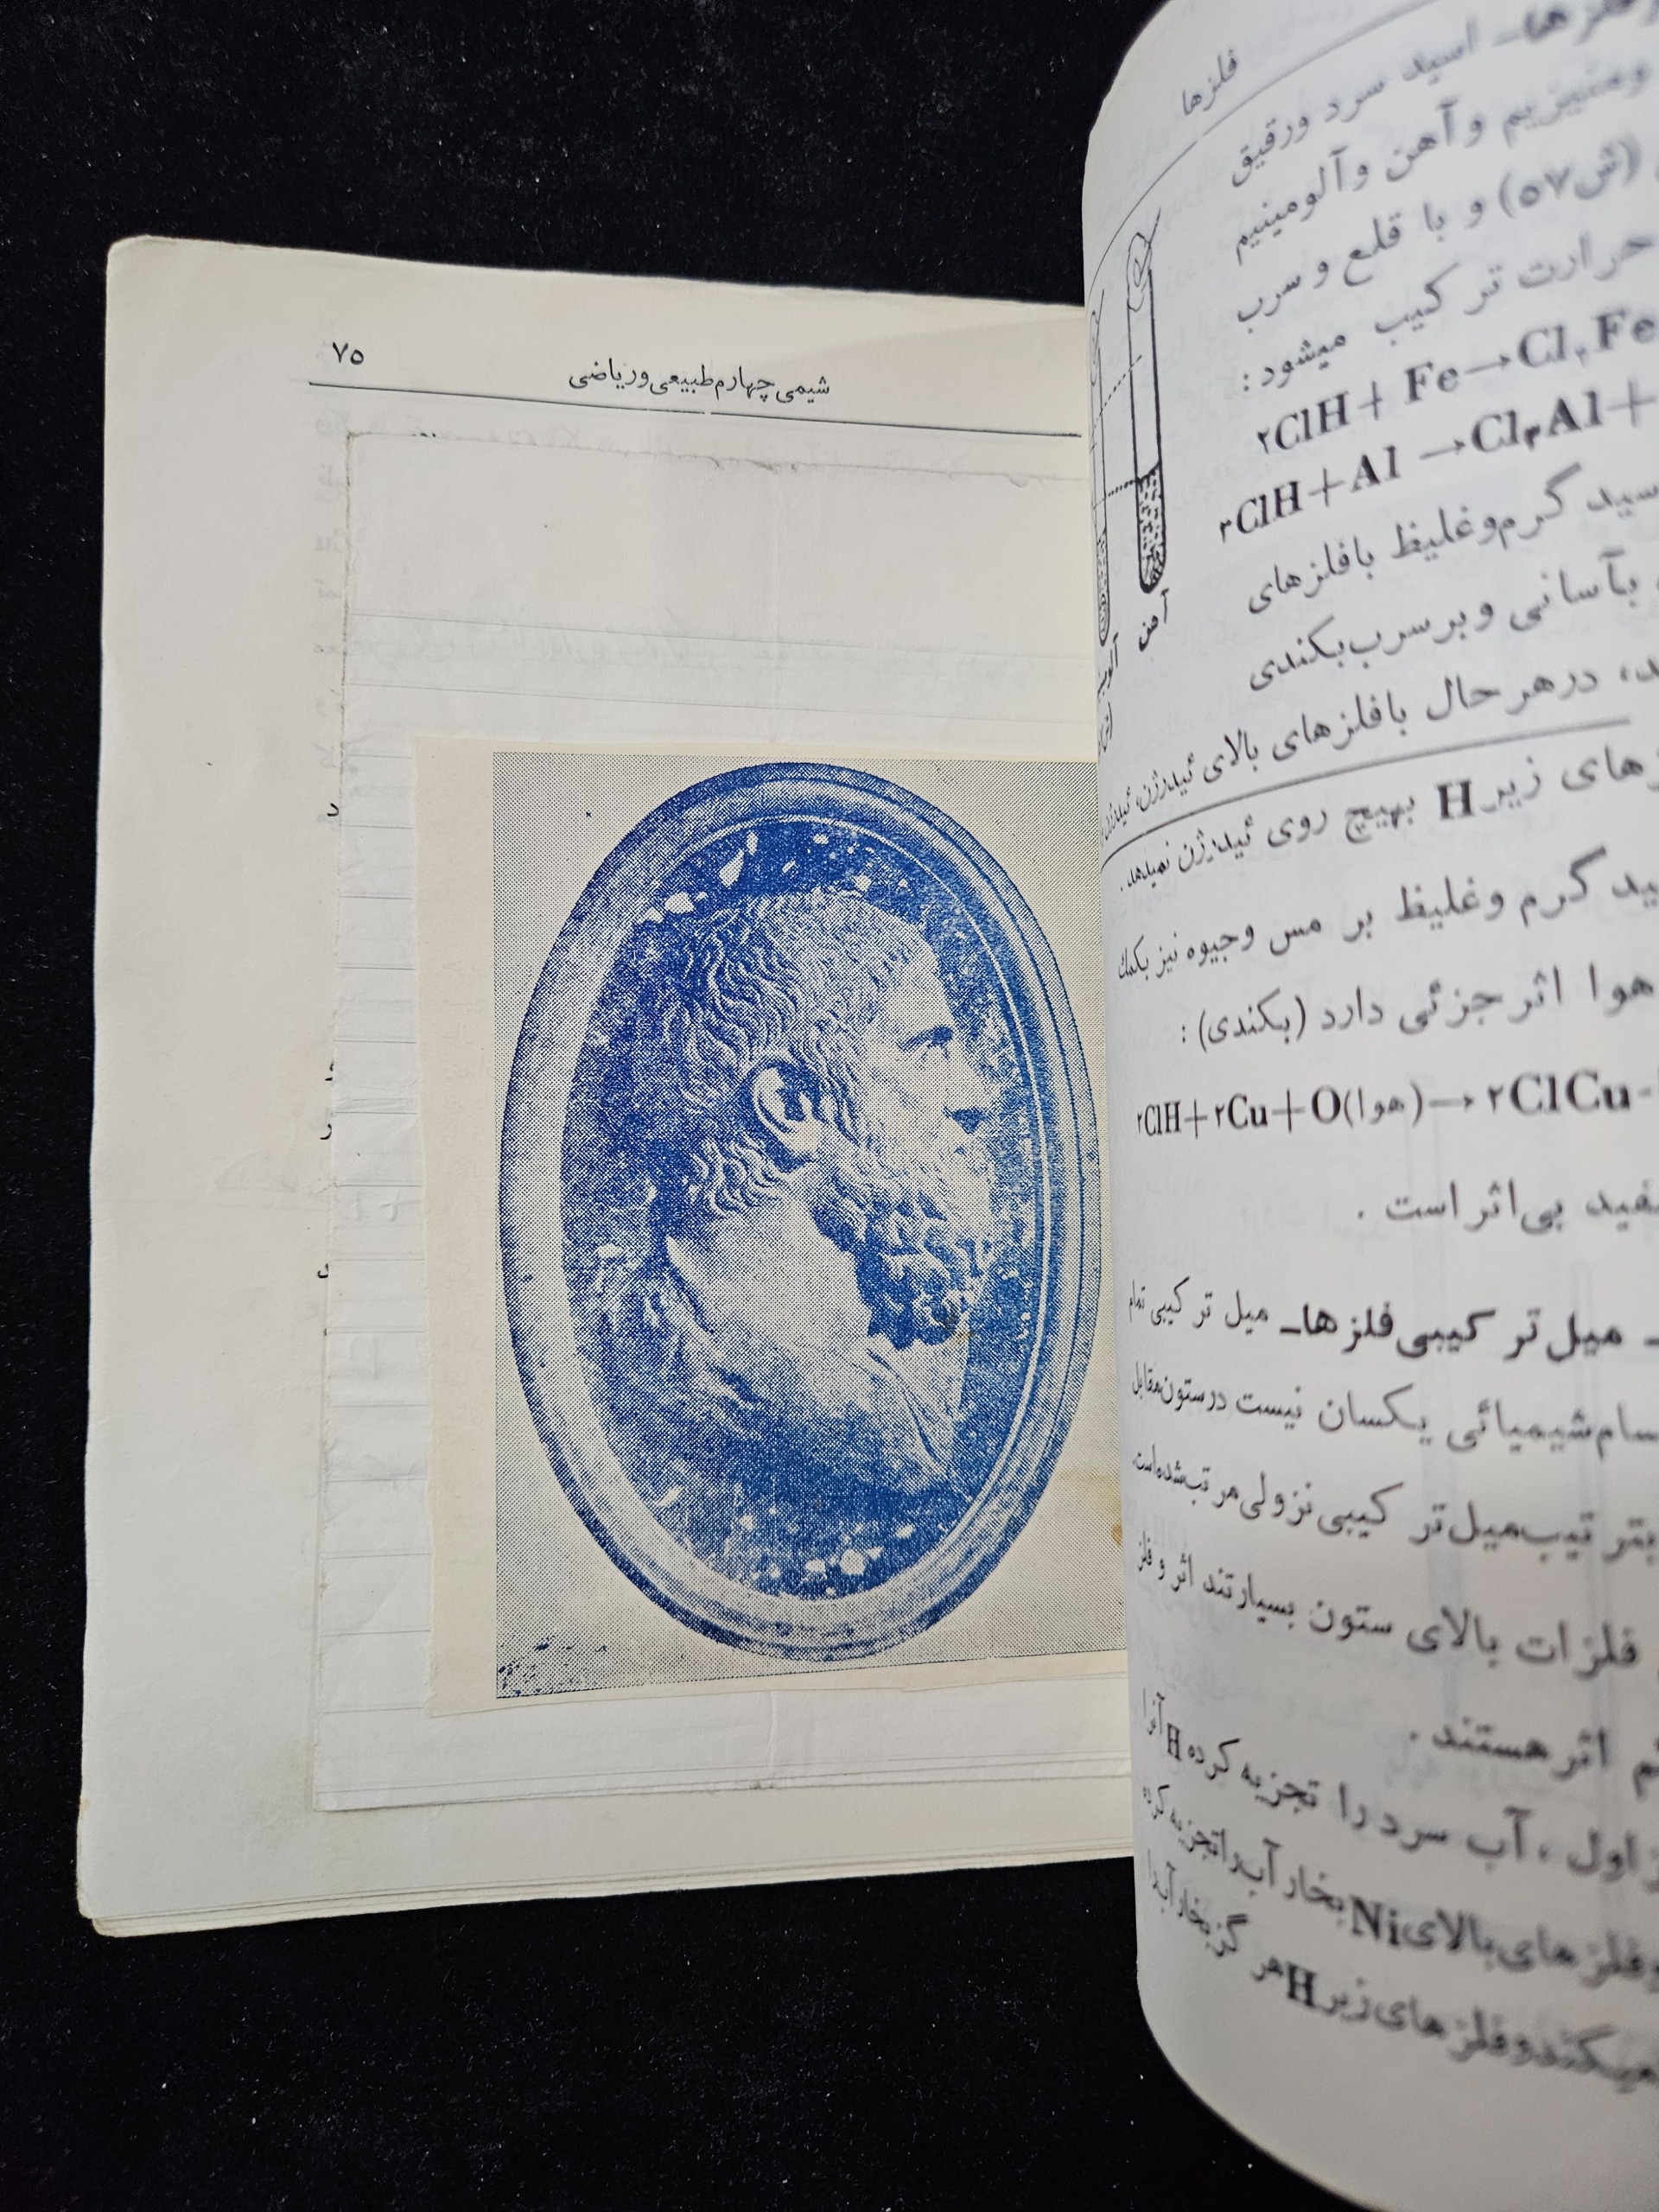 ۷۵
شیمی چهارم طبیعی و ریاضی
فلزها
فلزها ـ اسید سرد ورقیق
ومنیزیم و آهن و آلومینیم
(ش۵۷) و با قلع و سرب
حرارت تر کیب میشود :
۲ClH + Fe → Cl۲Fe
۳ClH + Al → Cl۳Al +
گرم وغلیظ بافلزهای
بآسانی و بر سرب بکندی
درهر حال بافلزهای بالای ئیدرژن، ئیدرژن
آهن
زیر H بهیچ روی ئیدرژن نمیدهد .
گرم وغلیظ بر مس وجیوه نیز بکمك
هوا اثر جزئی دارد (بکندی) :
۲ClH + ۲Cu + O(هوا) → ۲ClCu
بی اثر است .
ـ میل تر کیبی فلزها ـ میل تر کیبی تمام
شیمیائی یکسان نیست درستون مقابل
بتر تیب میل تر کیبی نزولی مرتب شده است
فلزات بالای ستون بسیار تند اثر و فلز
اثر هستند .
اول ، آب سرد را تجزیه کرده H آنرا
وفلزهای بالای Ni بخار آب را تجزیه کرده
میکند وفلزهای زیر H هر گز بخار آب را